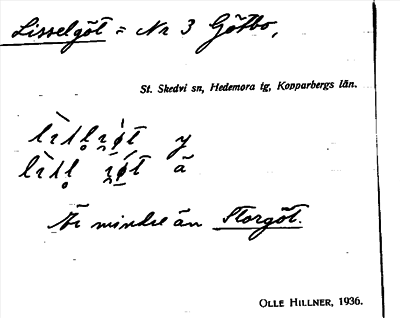 Lisselgöt = Nr 3 Götbo,
St. Skedvi sn, Hedemora tg, Kopparbergs län.
y
ä
Är mindre än Storgöt.
OLLE HILLNER, 1936.